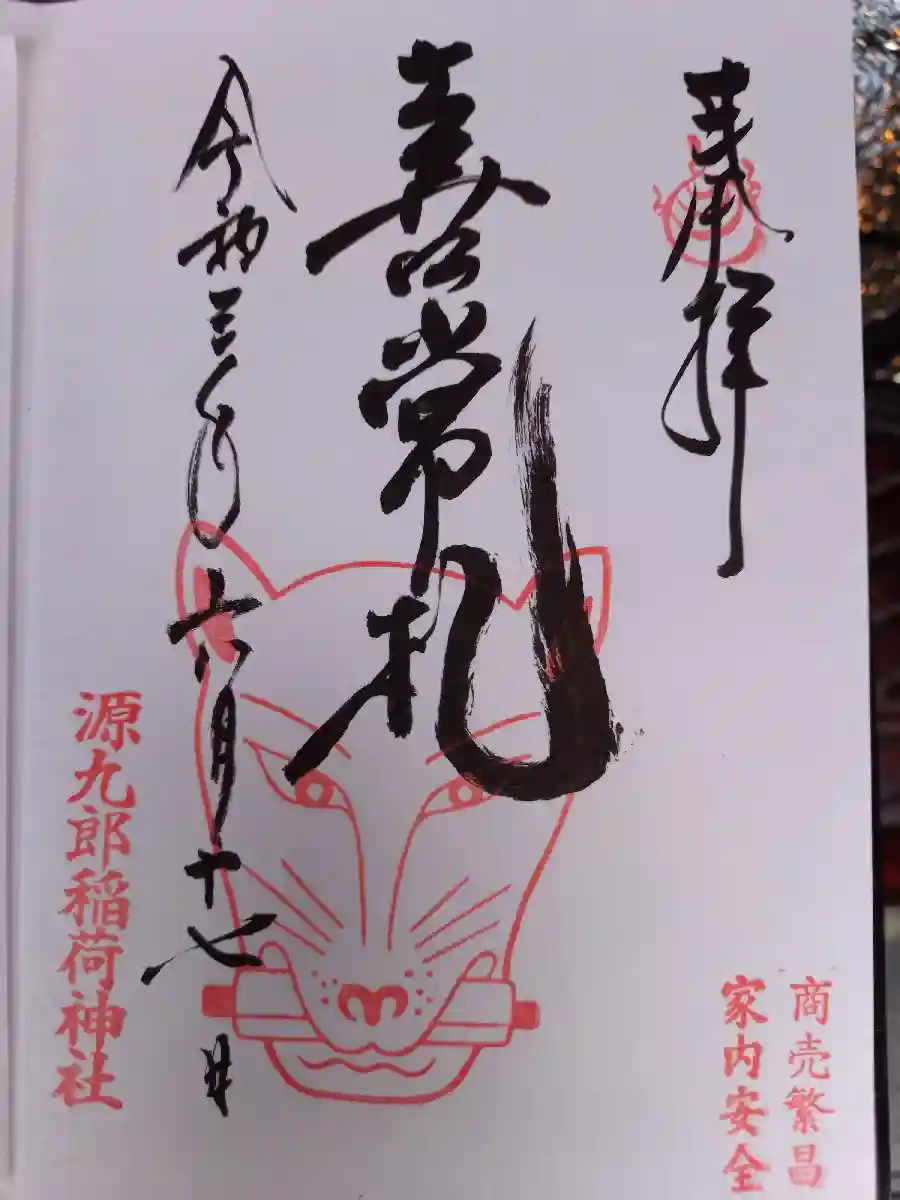 奉拝
商売繁昌
家内安全
喜常札
令和三年六月十七日
源九郎稲荷神社